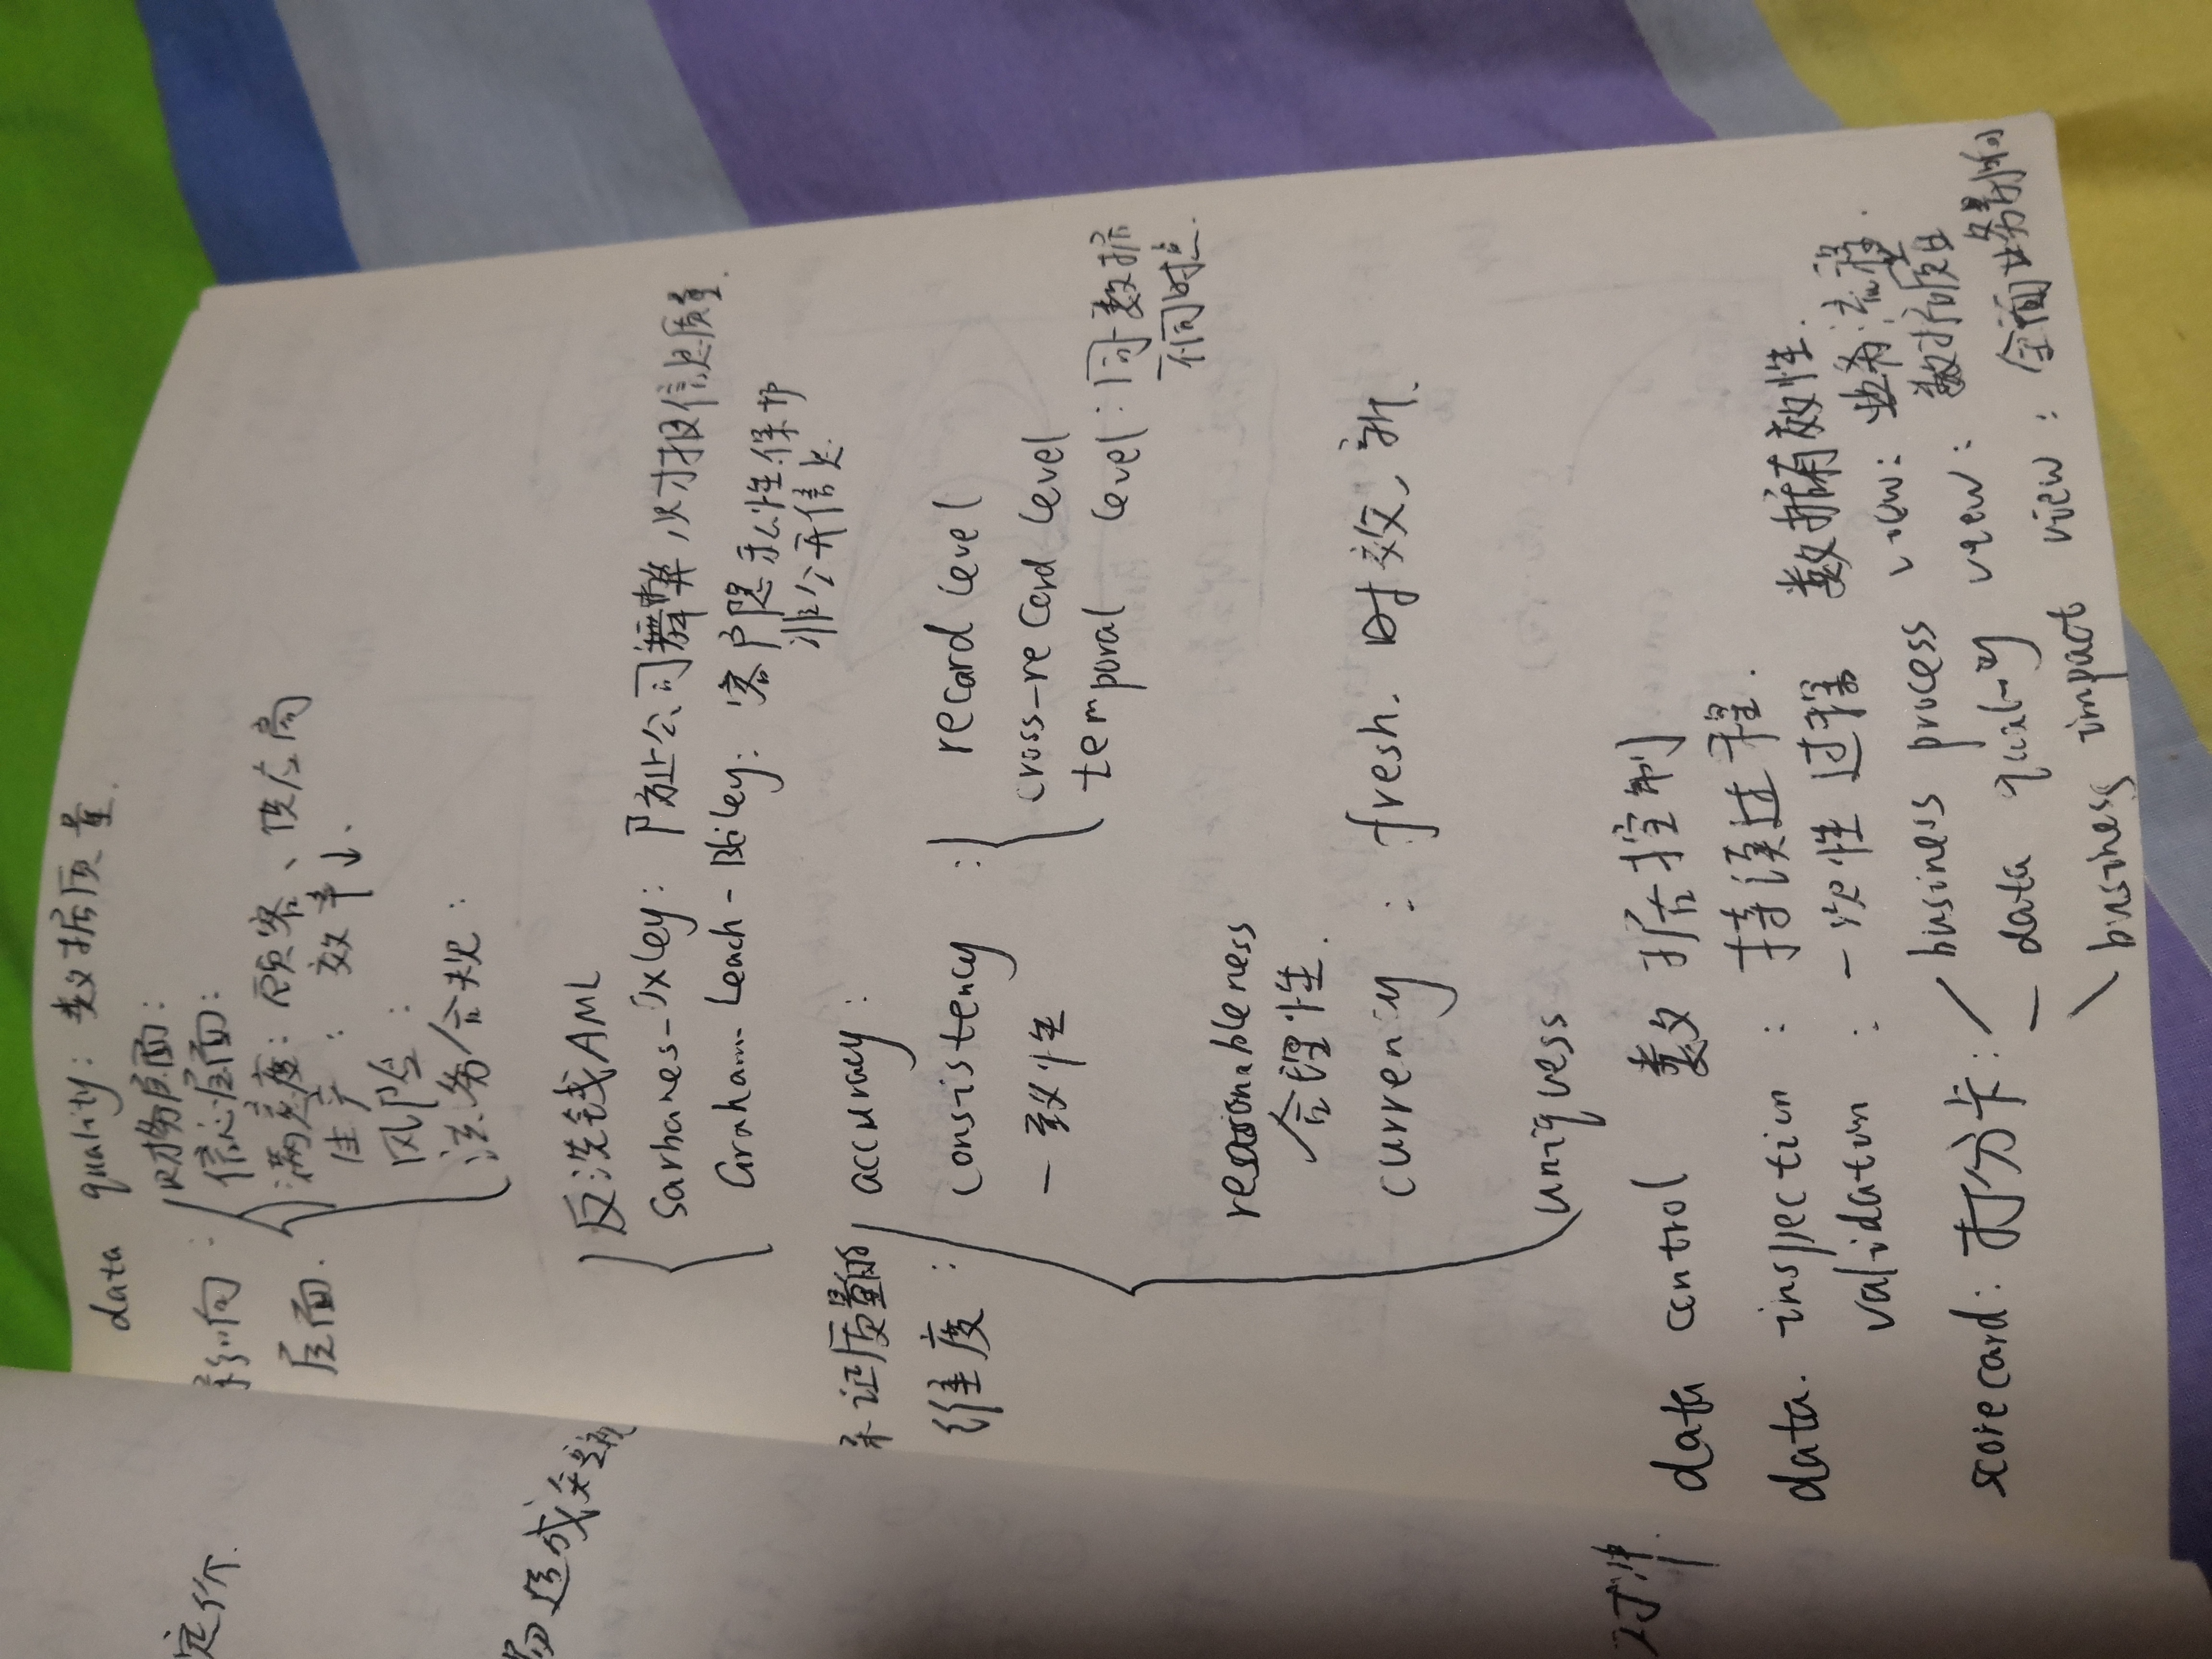 data quality: 数据质量.
影响: 财务层面:
信心层面:
层面. 满意度: 顾客、供应商
生产: 效率↓.
风险:
法务合规:
反洗钱AML
Sarbanes-Oxley: 防止公司舞弊,以财报信息质量.
Graham-Leach-Bliley: 客户隐私性保护
非公开信息
保证质量的
维度:
accuracy:
consistency: record level
一致性 cross-record level
temporal level: 同一数据
不同时点.
reasonableness
合理性.
currency: fresh. 时效, 新.
uniqueness
data control 数据控制
data. inspection: 持续过程.
validation: 一次性过程 数据有效性.
scorecard: 打分卡: business process view: 业务流程.
data quality view: 数据质量
business impact view: 全面业务影响
定价.
易造成关联
对冲.